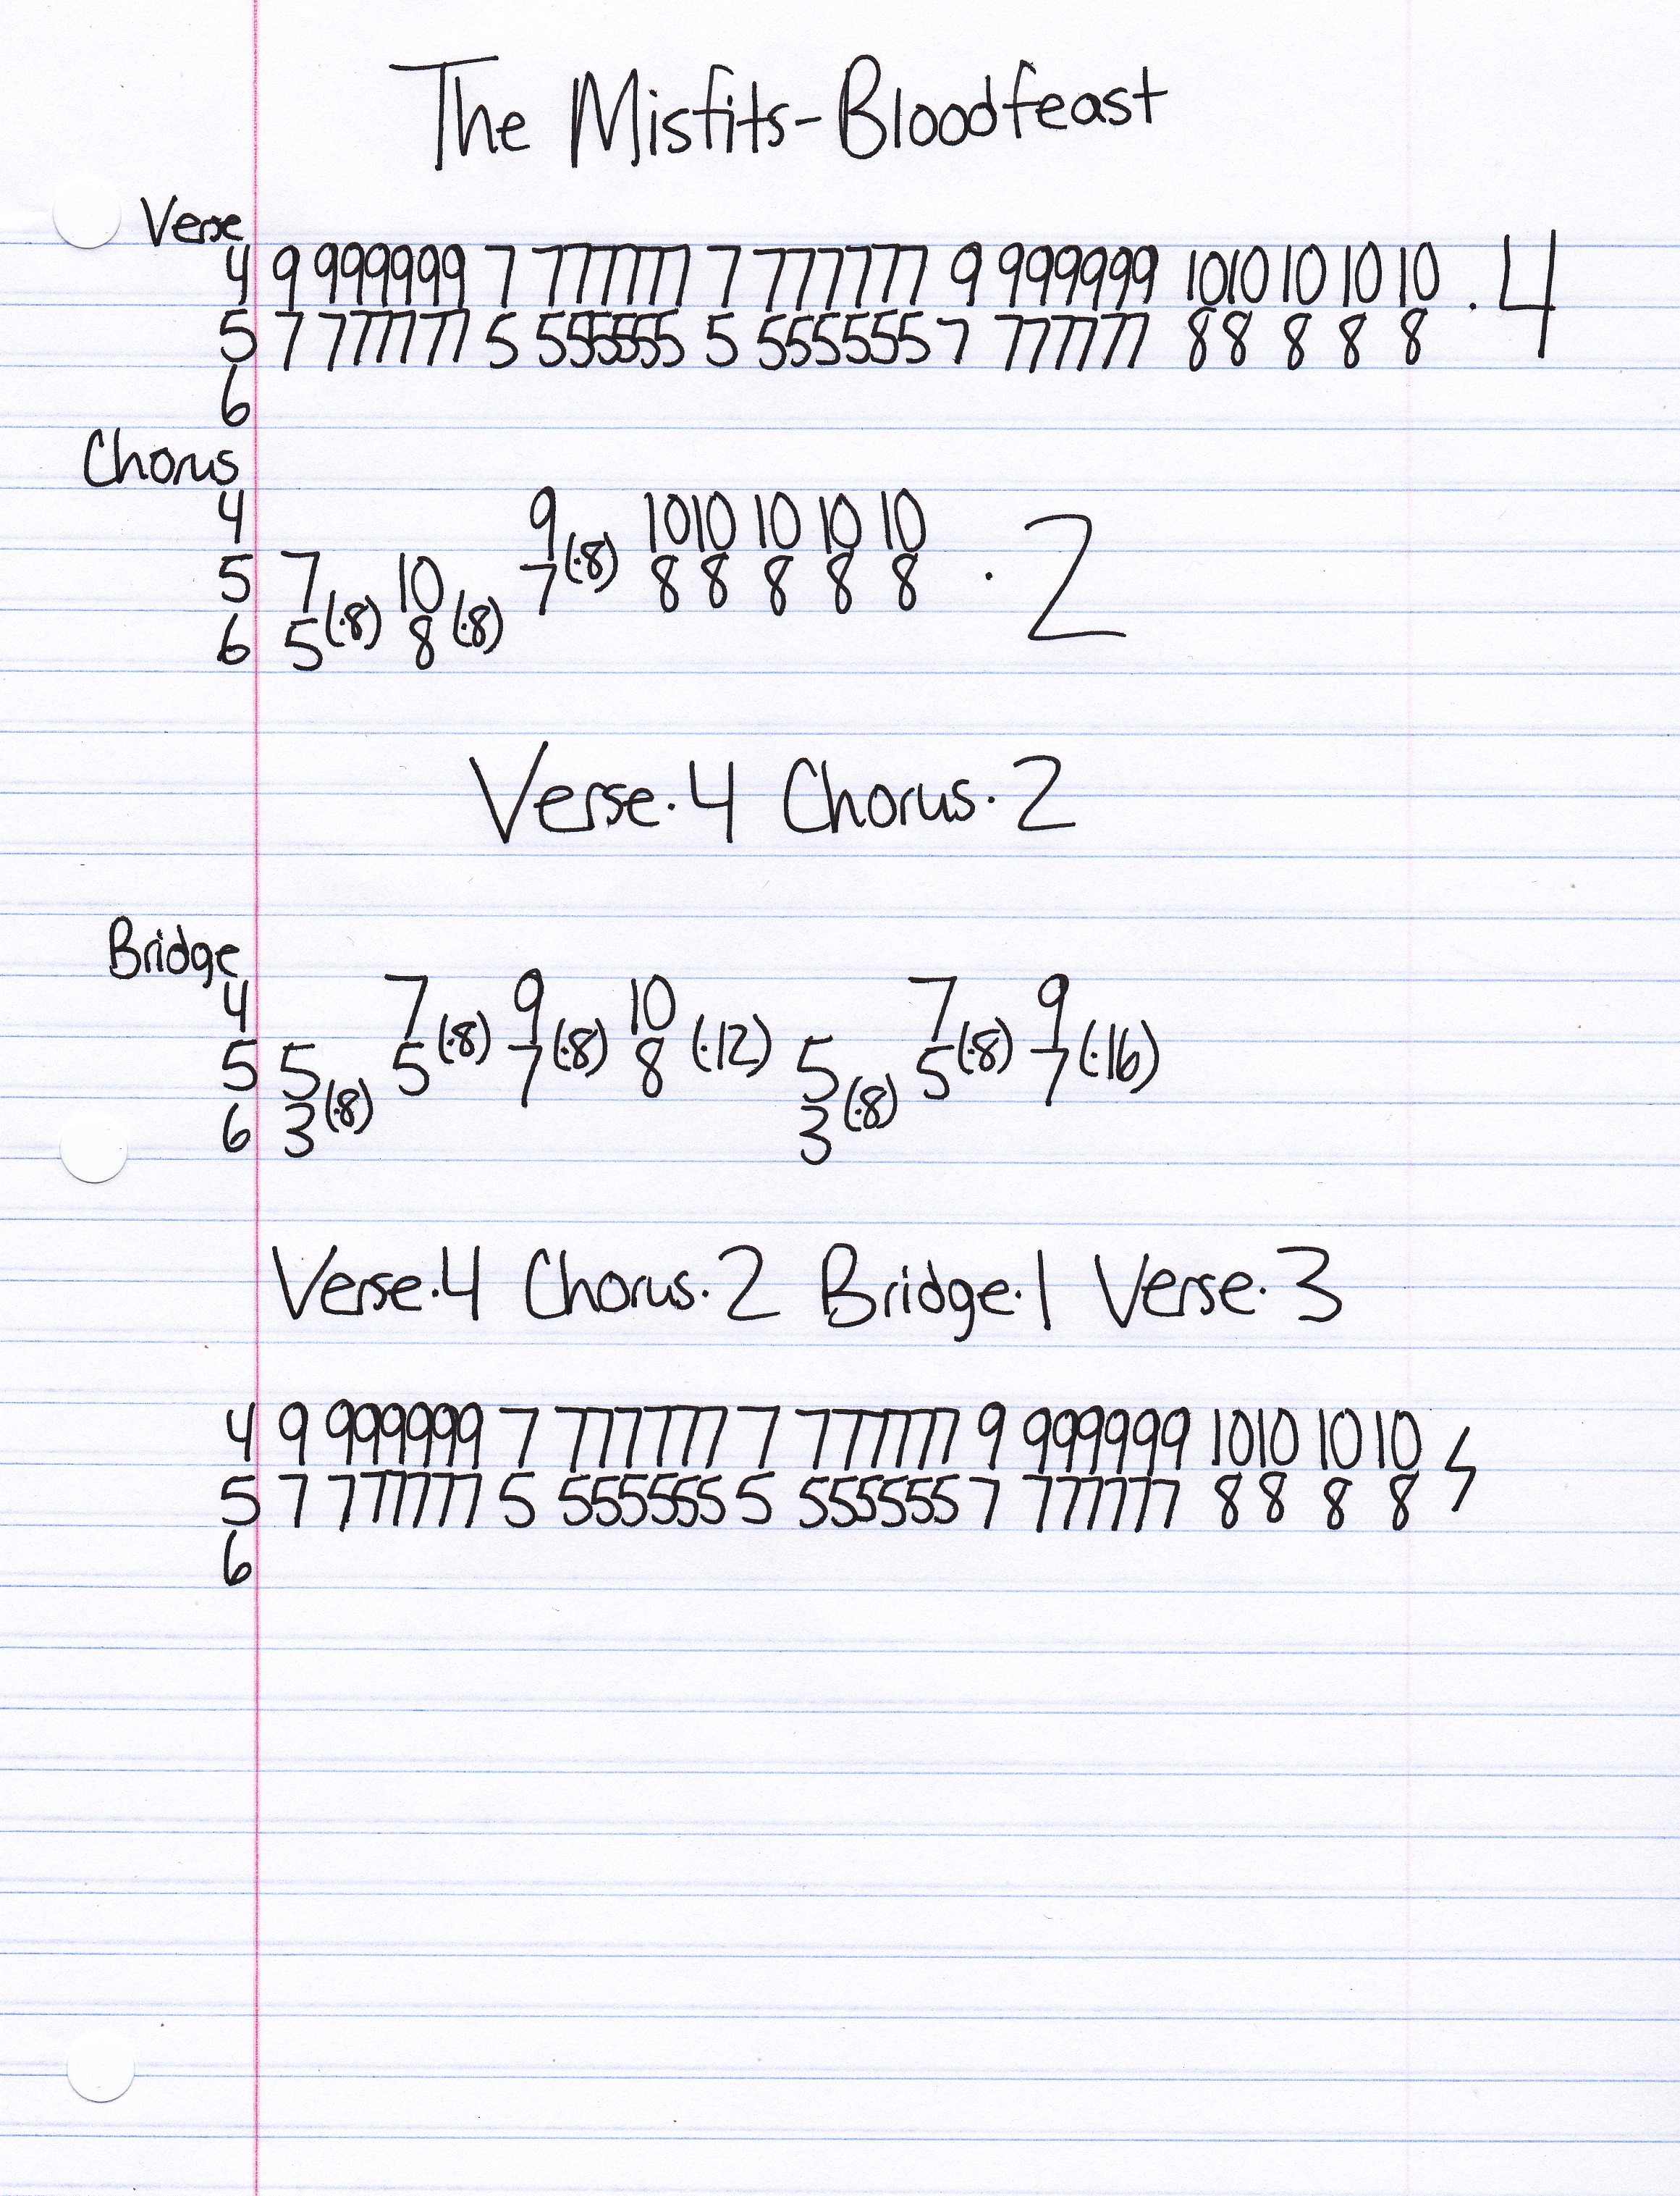 The Misfits-Bloodfeast
Verse
4 9 999999 7 777777 7 777777 9 999999 1010 10 10 10 · 4
5 7 777777 5 555555 5 555555 7 777777 88 8 8 8
6
Chorus
4 9 1010 10 10 10 · 2
5 7 10 7 (·8) 88 8 8 8
6 5 (·8) 8 (·8)
Verse·4 Chorus·2
Bridge
4 7 9 10 7 9
5 5 5 (·8) 7 (·8) 8 (·12) 5 5 (·8) 7 (·16)
6 3 (·8) 3 (·8)
Verse·4 Chorus·2 Bridge·1 Verse·3
4 9 999999 7 777777 7 777777 9 999999 1010 10 10
5 7 777777 5 555555 5 555555 7 777777 88 8 8
6